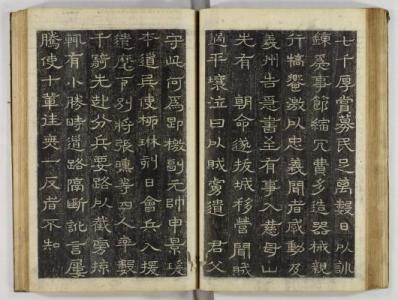 七千厚賞募民足萬數日以訓
鍊爲事節縮冗費多造器械親
行犒饗激以忠義聞者感動及
義州告急書至有事入慈母山
先有 朝命遂拔城移營聞賊
過平壤泣曰以賊寡遺 君父
守此何爲卽檄副元帥申景瑗
本道兵使柳琳刻日會兵入援
遣麾下別將張曛等四人率數
千騎先赴分兵要路以截旁掠
輒有小勝時道路隔斷訛言屢
騰使十輩往無一反者不知